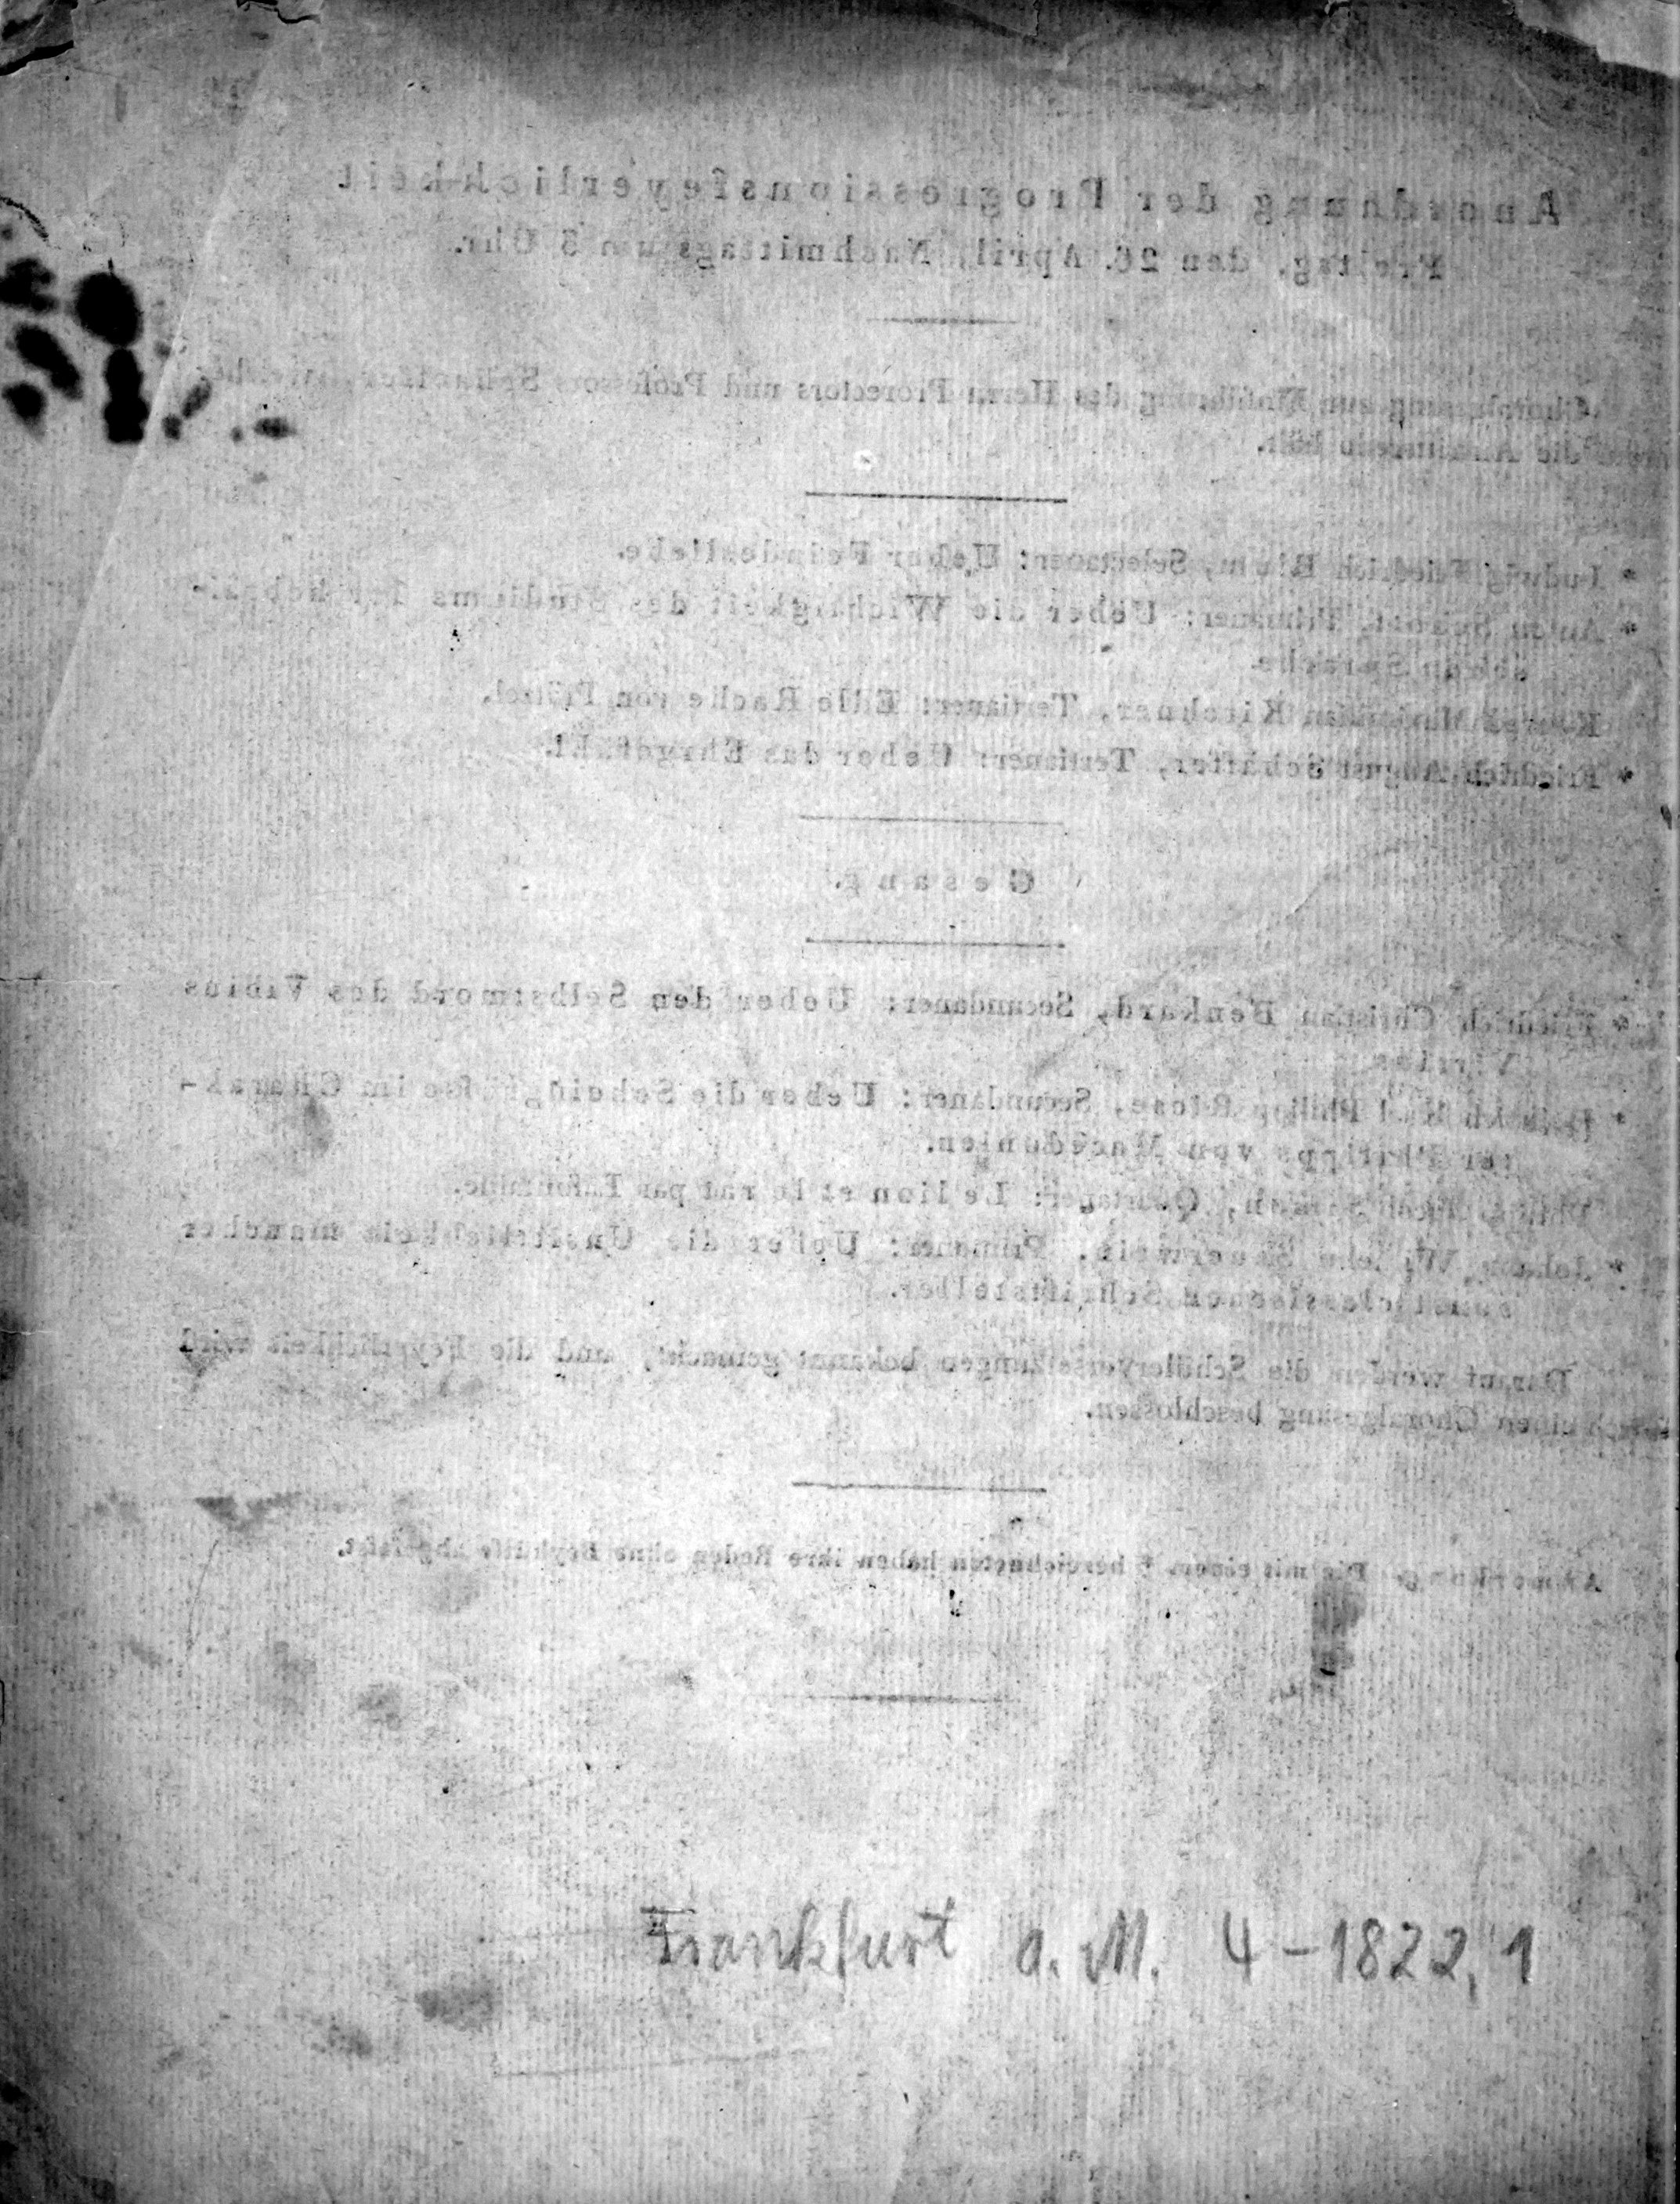 Anordnung der Progressionsfeyerlichkeit
Freitag, den 26. April, Nachmittags um 3 Uhr.
Choralgesang zur Einführung des Herrn Prorectors und Professors
die hält.
* Ludwig Friedrich Blum, Selectaner: Ueber Feindesliebe.
* Anton Primaner: Ueber die Wichtigkeit des Studiums der
schen Sprache.
Kirchner, Tertianer: Edle Rache von Pfeffel.
* Friedrich August Schäffer, Tertianer: Ueber das Ehrgefühl.
Gesang.
* Friedrich Christian Benkard, Secundaner: Ueber den Selbstmord des Vibius
Virrius.
* Philipp Secundaner: Ueber die Scheingrösse im Charak-
ter Philipps von Macedonien.
Quartaner: Le lion et le rat par Lafontaine.
* Johann Wilhelm Sauerwein, Primaner: Ueber die Unsittlichkeit mancher
Schriftsteller.
Darauf werden die Schülerversetzungen bekannt gemacht, und die Feyerlichkeit wird
durch einen Choralgesang beschlossen.
Anmerkung. Die mit einem * bezeichneten haben ihre Reden ohne Beyhülfe abgefasst.
Frankfurt a. M. 4-1822,1